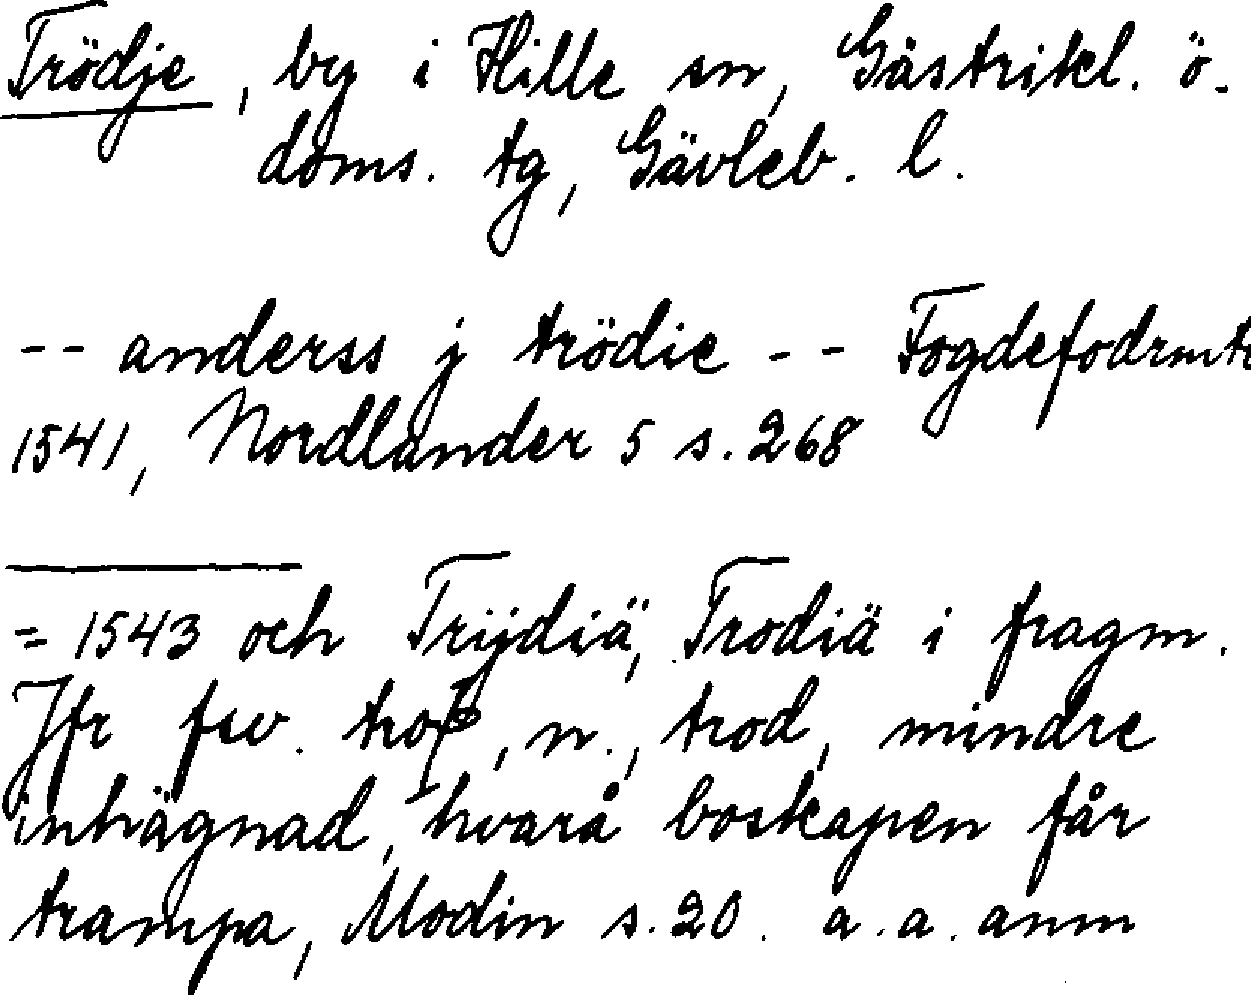 Trödje, by i Hille sn, Gästrikl. ö.
doms. tg, Gävleb. l.
-- anderss j trödie -- Fogdefodrmtr
1541, Nordlander 5 s. 268
= 1543 och Trijdiä, Trodiä i fragm.
Jfr fsv. troþ, n., trod, mindre
inhägnad, hvarå boskapen får
trampa, Modin s. 20. a. a. anm